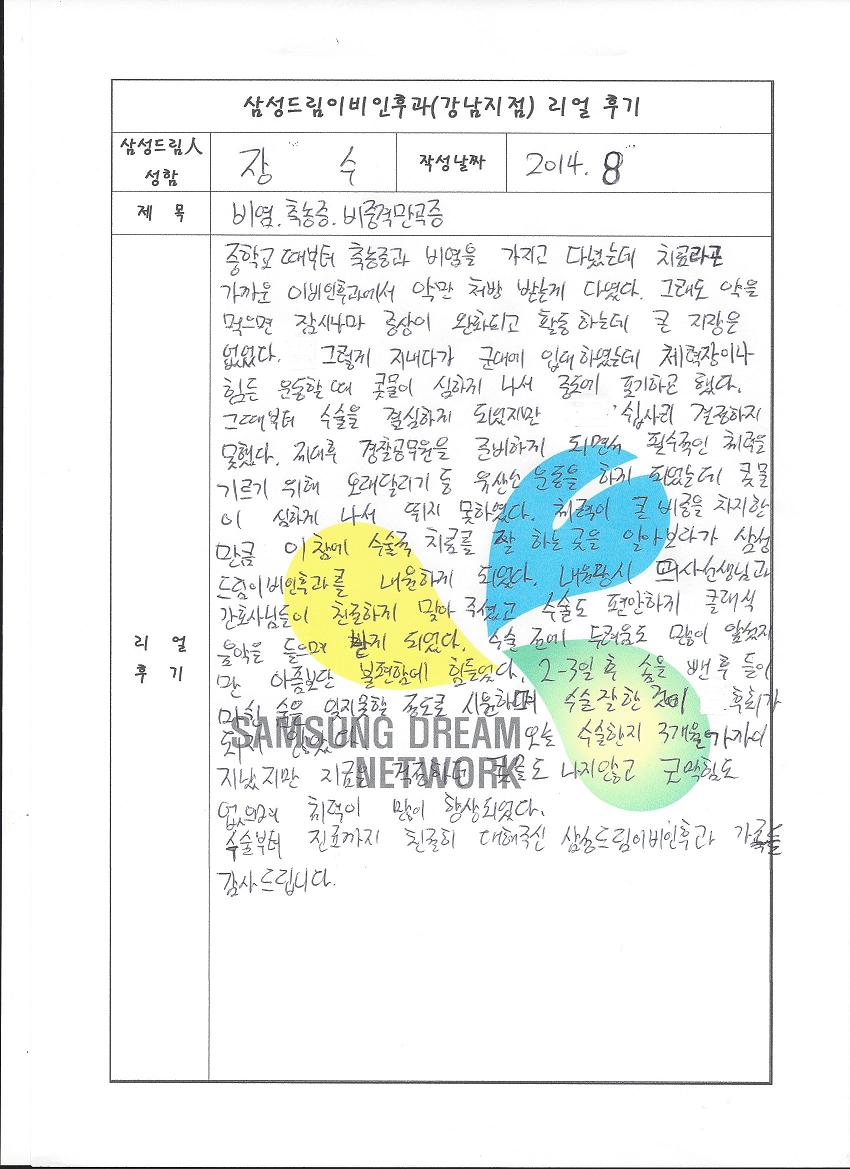 삼성드림이비인후과(강남지점) 리얼 후기
삼성드림人 성함
장 수
작성날짜
2014. 8
제 목
비염. 축농증. 비중격만곡증
리 얼 후 기
중학교 때부터 축농증과 비염을 가지고 다녔는데 치료라곤
가까운 이비인후과에서 약만 처방 받는게 다였다. 그래도 약을
먹으면 잠시나마 증상이 완화되고 활동하는데 큰 지장은
없었다. 그렇게 지내다가 군대에 입대하였는데 체력장이나
힘든 운동할 때 콧물이 심하게 나서 중도에 포기하곤 했다.
그때부터 수술을 결심하게 되었지만 쉽사리 결정하지
못했다. 제대후 경찰공무원을 준비하게 되면서 필수적인 체력을
기르기 위해 오래달리기 등 유산소 운동을 하게 되었는데 콧물
이 심하게 나서 뛰지 못하였다. 체력이 큰 비중을 차지한
만큼 이참에 수술측 치료를 잘 하는 곳을 알아보다가 삼성
드림이비인후과를 내원하게 되었다. 내원당시 의사선생님과
간호사님들이 친절하게 맞아 주셨고 수술도 편안하게 클래식
음악을 들으며 받게 되었다. 수술 전에 두려움도 많이 앞섰지
만 아픔보단 불편함에 힘들었다. 2-3일 후 솜을 뺀 후 들이
마신 숨은 잊지못할 정도로 시원하며 수술 잘한 것이 후회가
되지 않았다. 오늘 수술한지 3개월가까이
지났지만 지금은 걱정하던 콧물도 나지않고 코막힘도
없으며 체력이 많이 향상되었다.
수술부터 진료까지 친절히 대해주신 삼성드림이비인후과 가족들
감사드립니다.
SAMSUNG DREAM
NETWORK